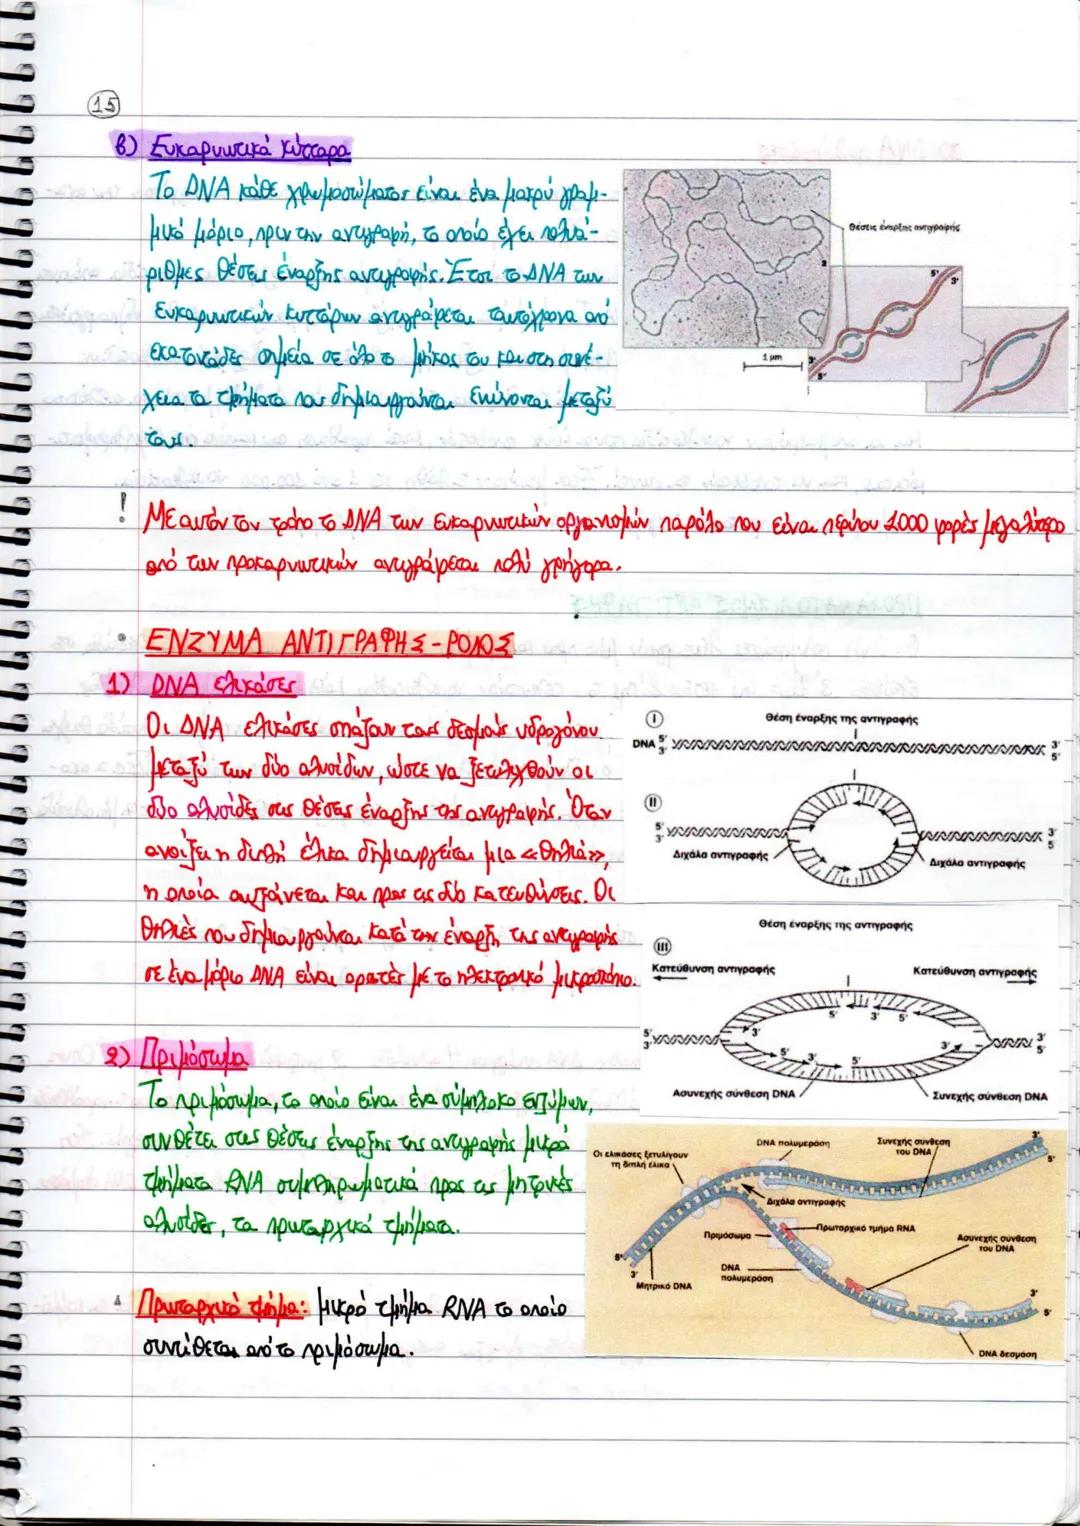 15
β) Ευκαρυωτικά κύτταρα
Το DNA κάθε χρωμοσώματος είναι ένα μακρύ γραμ-
μικό μόριο, πριν την αντιγραφή, το οποίο έχει πολυά-
ριθμες θέσεις έναρξης αντιγραφής. Έτσι το DNA των
ευκαρυωτικών κυττάρων αντιγράφεται ταυτόχρονα από
εκατοντάδες σημεία σε όλο το μήκος του και στη συνέ-
χεια τα τμήματα που δημιουργούνται ενώνονται μεταξύ
τους.
Θέσεις έναρξης αντιγραφής
2
5'
3'
1 μm
3'
5'
! Με αυτόν τον τρόπο το DNA των ευκαρυωτικών οργανισμών παρόλο που είναι περίπου 1.000 φορές μεγαλύτερο
από των προκαρυωτικών αντιγράφεται πολύ γρήγορα.
• ΕΝΖΥΜΑ ΑΝΤΙΓΡΑΦΗΣ - ΡΟΛΟΣ
1) DNA ελικάσες
Οι DNA ελικάσες σπάζουν τους δεσμούς υδρογόνου
μεταξύ των δύο αλυσίδων, ώστε να ξετυλιχθούν οι
δύο αλυσίδες στις θέσεις έναρξης της αντιγραφής. Όταν
ανοίξει η διπλή έλικα δημιουργείται μια «θηλιά»,
η οποία αυξάνεται και προς τις δύο κατευθύνσεις. Οι
θηλιές που δημιουργούνται κατά την έναρξη της αντιγραφής
σε ένα μόριο DNA είναι ορατές με το ηλεκτρονικό μικροσκόπιο.
I
Θέση έναρξης της αντιγραφής
DNA 5' 3'
3' 5'
II
5' 3'
3' 5
Διχάλα αντιγραφής
Διχάλα αντιγραφής
Θέση έναρξης της αντιγραφής
III
Κατεύθυνση αντιγραφής
Κατεύθυνση αντιγραφής
5' 3' 5'
5' 3' 3' 3'
3' 5' 3' 5' 5'
Ασυνεχής σύνθεση DNA
Συνεχής σύνθεση DNA
2) Πριμόσωμα
Το πριμόσωμα, το οποίο είναι ένα σύμπλοκο ενζύμων,
συνθέτει στις θέσεις έναρξης της αντιγραφής μικρά
τμήματα RNA συμπληρωματικά προς τις μητρικές
αλυσίδες, τα πρωταρχικά τμήματα.
Πρωταρχικό τμήμα: μικρό τμήμα RNA το οποίο
συντίθεται από το πριμόσωμα.
Οι ελικάσες ξετυλίγουν
τη διπλή έλικα
DNA πολυμεράση
Συνεχής σύνθεση
του DNA
3'
5'
Διχάλα αντιγραφής
Πριμόσωμα
Πρωταρχικό τμήμα RNA
Ασυνεχής σύνθεση
του DNA
5'
3'
DNA
πολυμεράση
Μητρικό DNA
3'
5'
DNA δεσμάση